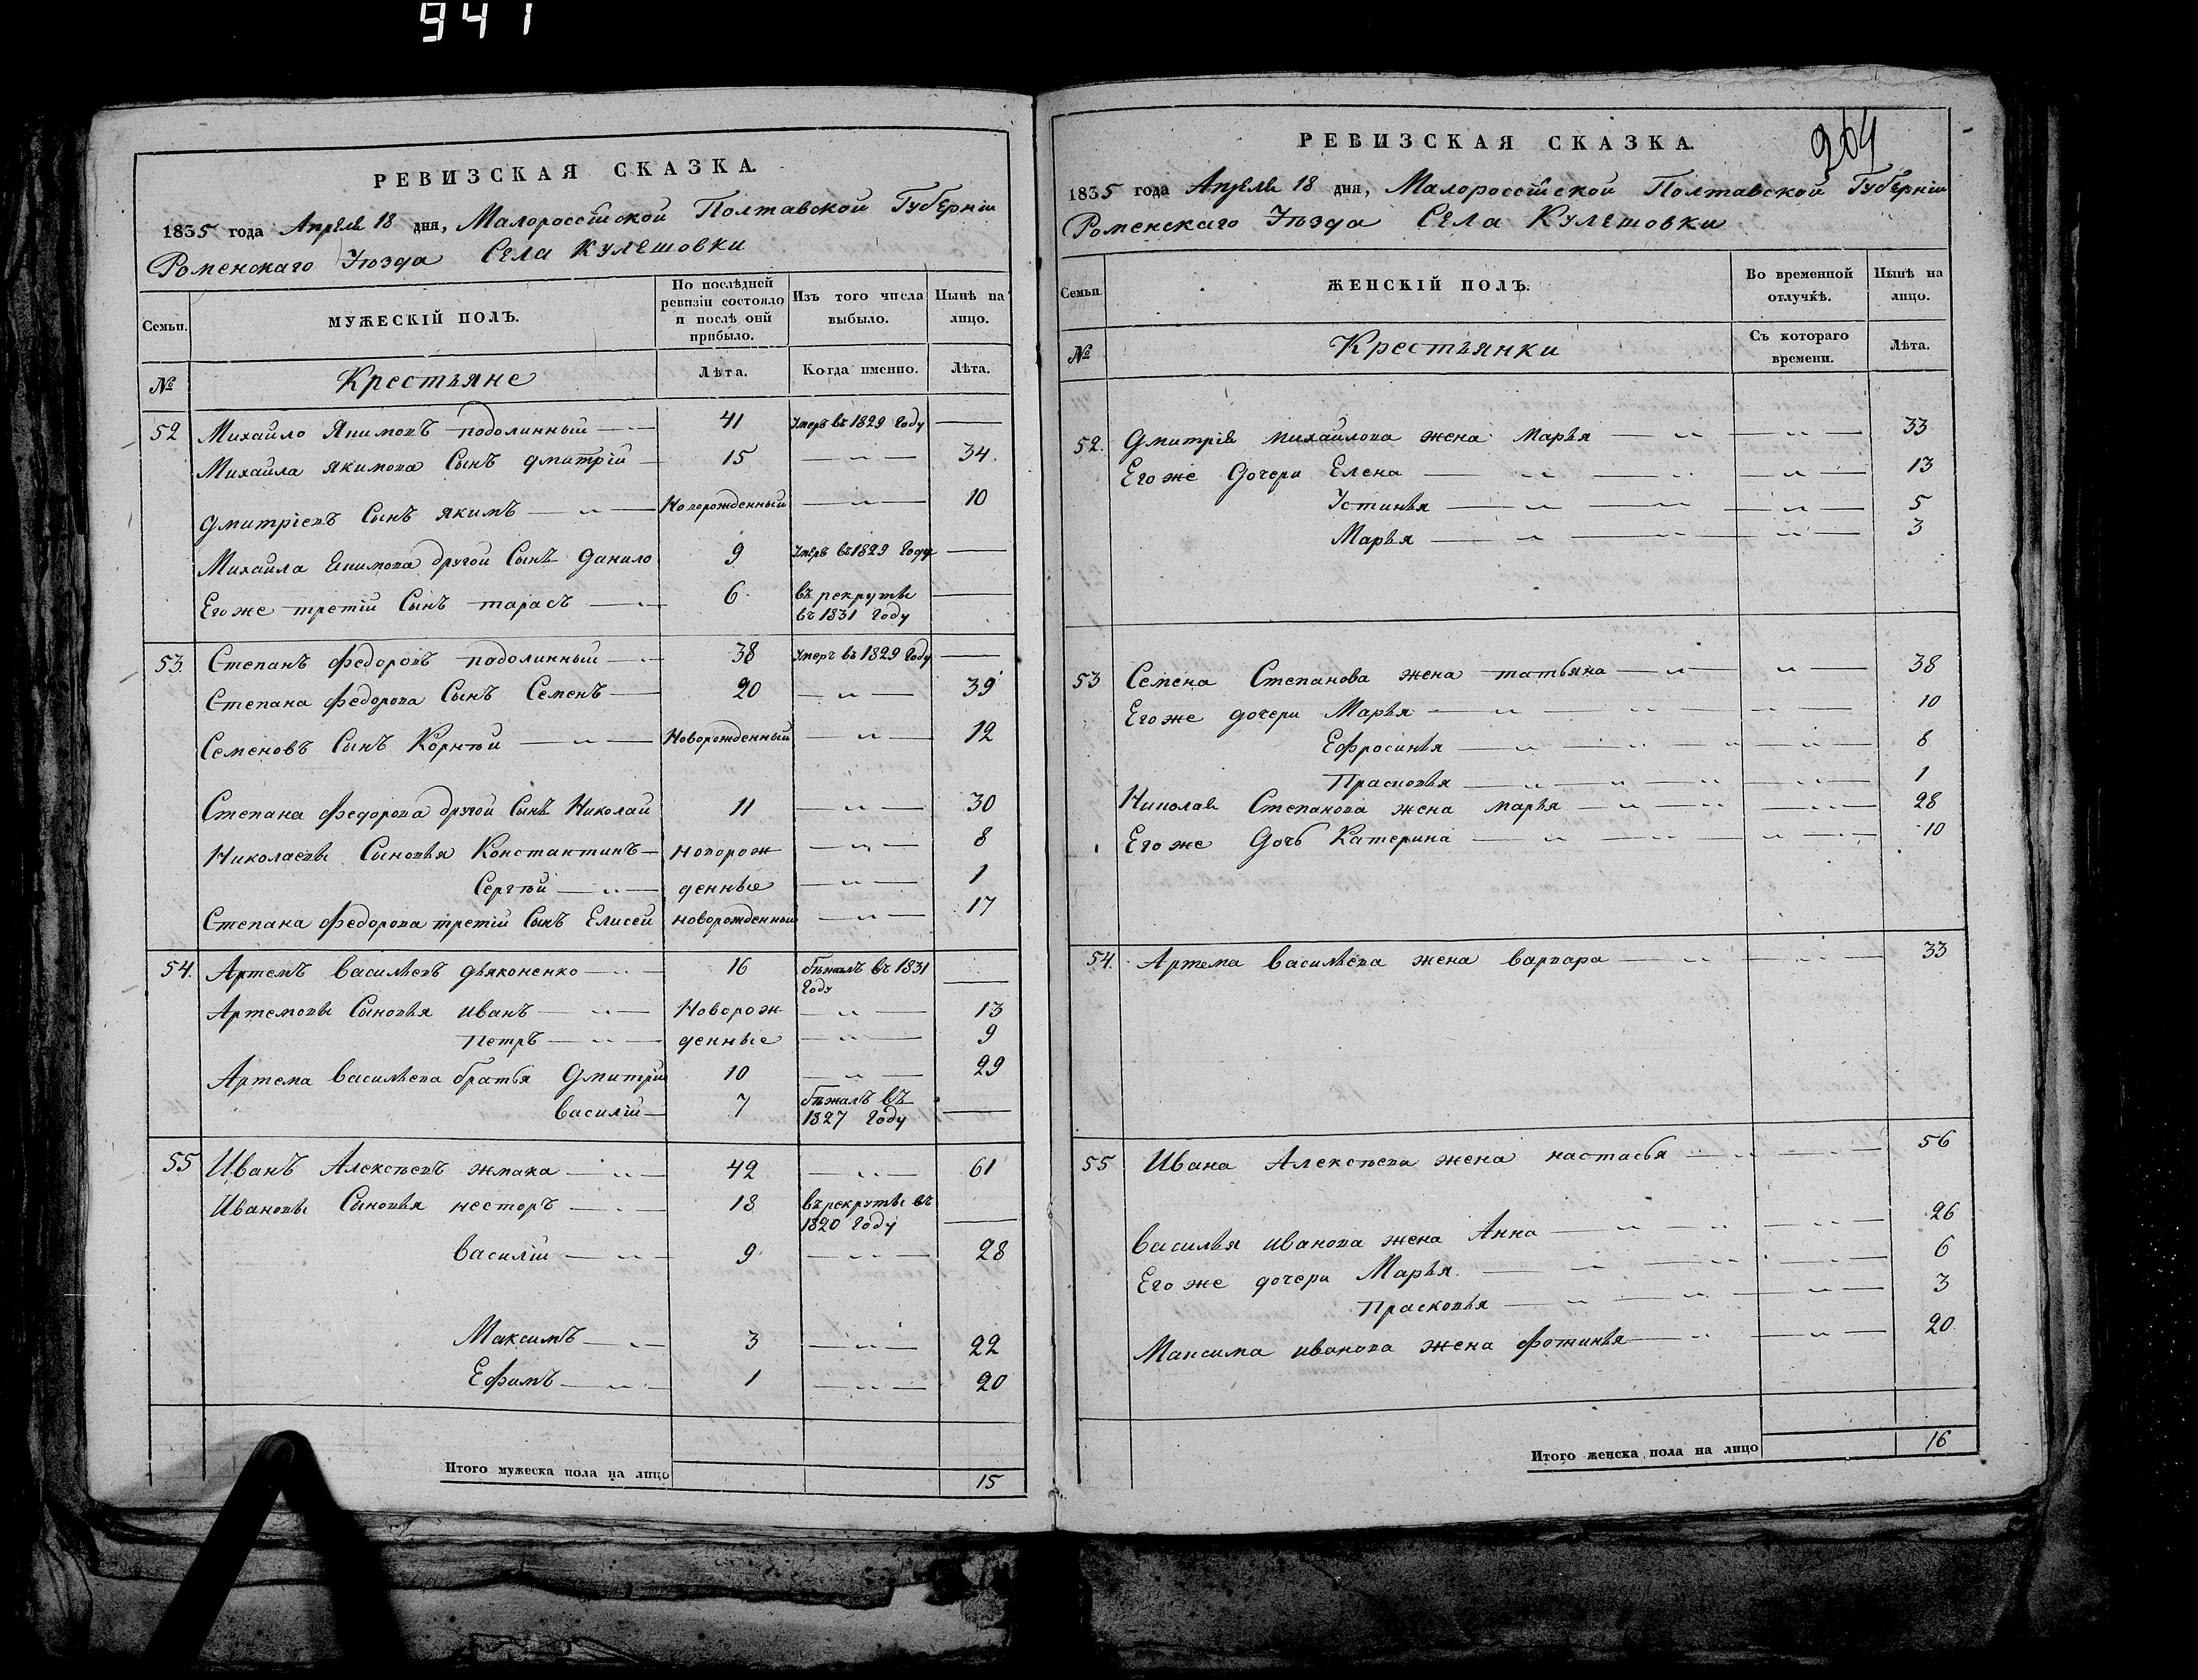 941
РЕВИЗСКАЯ СКАЗКА.
1835 года Апреля 18 дня, Малороссійской Полтавской Губерніи
Роменскаго Уѣзда Села Кулешовки
Семьи. МУЖЕСКІЙ ПОЛЪ. По послѣдней ревизіи состояло и послѣ оной прибыло. Изъ того числа выбыло. Нынѣ на лицо.
№ Крестьяне Лѣта. Когда именно. Лѣта.
52 Михайло Якимовъ подолинный 41 умеръ въ 1829 году
Михайла Якимова Сынъ дмитрій 15 34.
дмитріевъ Сынъ якимъ Новорожденный 10
Михайла Якимова другой Сынъ данило 9 умеръ въ 1829 году
Его же третій Сынъ тарасъ 6 въ рекруты
въ 1831 году
53. Степанъ федоровъ подолинный 38 умеръ въ 1829 году
Степана федорова Сынъ Семенъ 20 39
Семеновъ Сынъ Корнѣй Новорожденный 12
Степана федорова другой Сынъ Николай 11 30
Николаевы Сыновья Константинъ новорож 8
Сергѣй денные 1
Степана федорова третій Сынъ Елисей новорожденный 17
54. Артемъ васильевъ дьяконенко 16 бѣжалъ въ 1831
году
Артемовы Сыновья иванъ Новорож 13
петръ денные 9
Артема васильева братья дмитрій 10 29
василій 7 бѣжалъ въ
1827 году
55 Иванъ Алексѣевъ жмака 42 61
Ивановы Сыновья несторъ 18 въ рекруты въ
1820 году
василій 9 28
Максимъ 3 22
Ефимъ 1 20
Итого мужеска пола на лицо 15
264
РЕВИЗСКАЯ СКАЗКА.
1835 года Апреля 18 дня, Малороссійской Полтавской Губерніи
Роменскаго Уѣзда Села Кулешовки
Семьи. ЖЕНСКІЙ ПОЛЪ. Во временной отлучкѣ. Нынѣ на лицо.
№ Крестьянки Съ котораго времени. Лѣта.
52. дмитрія михайлова жена Марья 33
Его же дочери Елена 13
Устинья 5
Марья 3
53 Семена Степанова жена татьяна 38
Его же дочери Марья 10
Ефросинья 8
Прасковья 1
Николая Степанова жена марья 28
Его же дочь Катерина 10
54. Артема васильева жена варвара 33
55 Ивана Алексѣева жена настасья 56
василья иванова жена Анна 26
Его же дочери Марья 6
Прасковья 3
Максима иванова жена фотинья 20
Итого женска пола на лицо 16